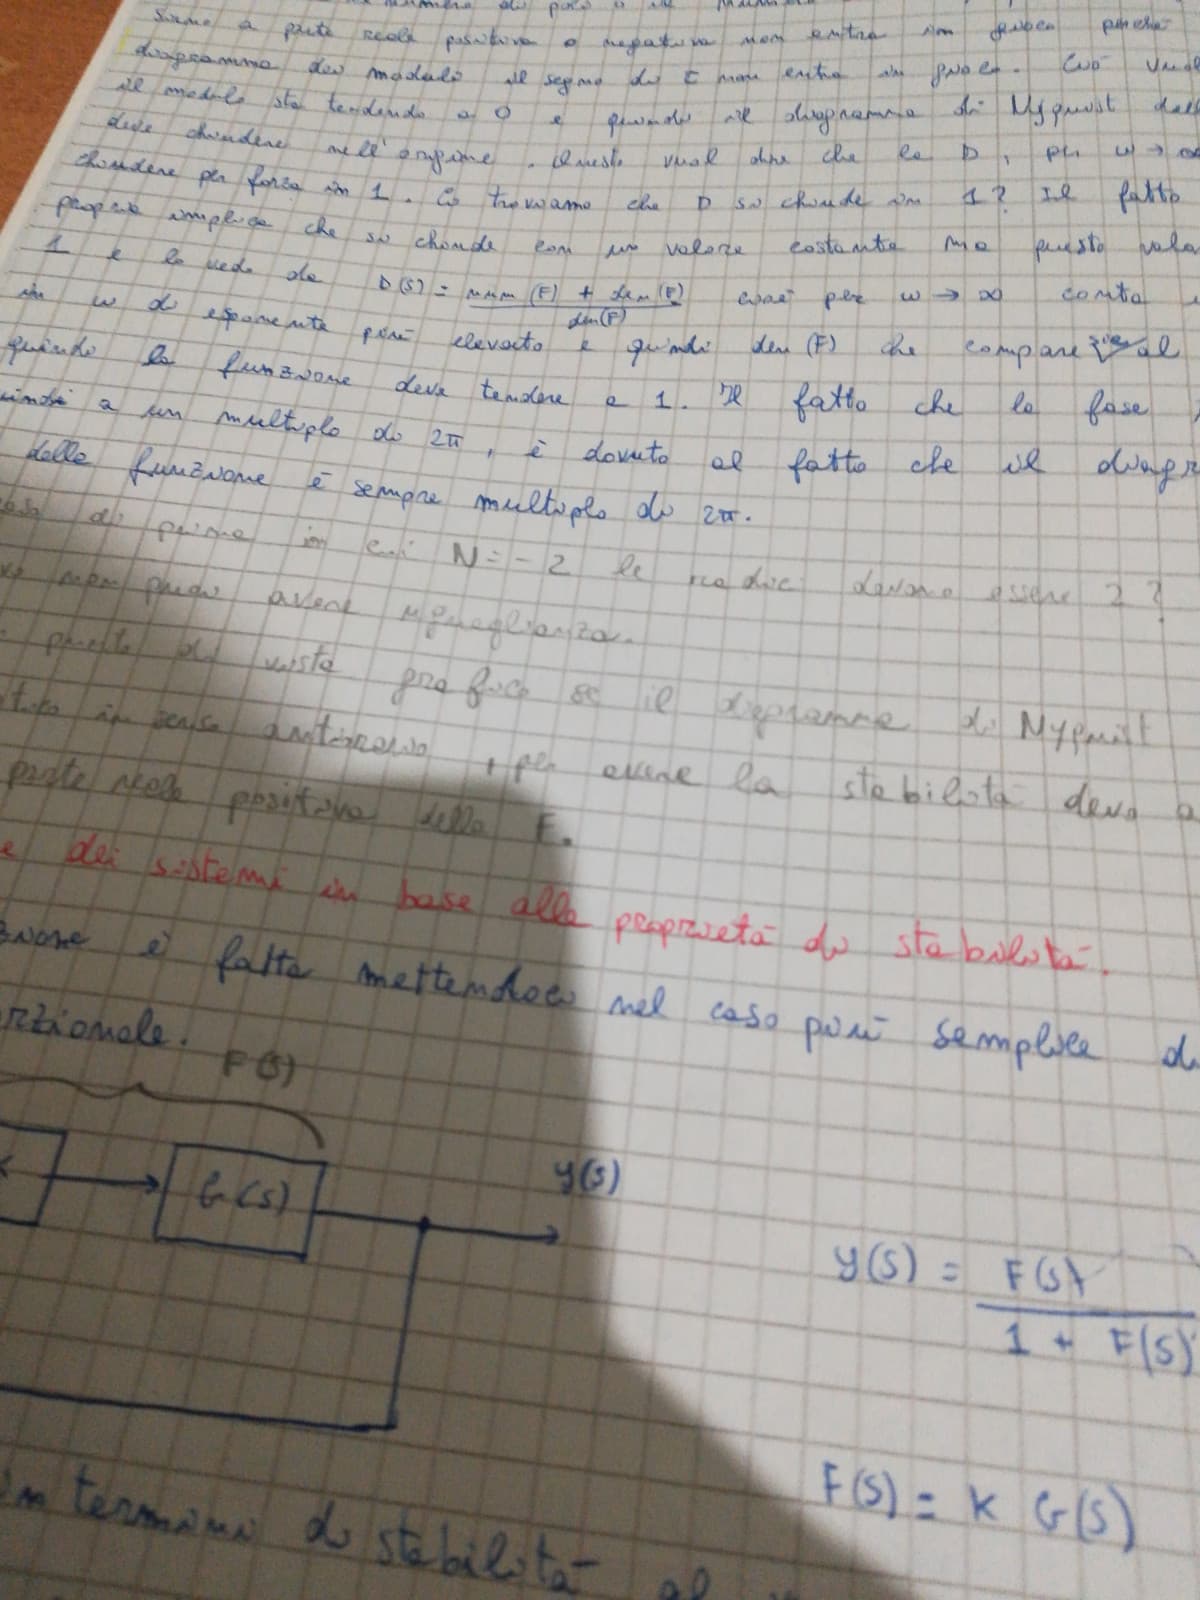 siamo a parte reale positiva o negativa non entra in gioco perché
diagramma dei moduli il segno di τ non entra in gioco. Ciò vuol
il modulo sta tendendo a 0 e quindi il diagramma di Nyquist
deve chiudere nell'origine. Questo vuol dire che la D, per ω → ∞
chiudere per forza in 1. Ci troviamo che D si chiude in 1? Il fatto
proprio implica che si chiude con un valore costante ma questo
1 e lo vedo da D(S) = num(F) + den(F) / den(F) cioè per ω → ∞ conta
in ω di esponente più elevato e quindi den(F) che compare al
quindi la funzione deve tendere a 1. Il fatto che la fase
a un multiplo di 2π, è dovuto al fatto che il
della funzione è sempre multiplo di 2π.
di prima in cui N = -2 le radici devono essere 2?
non puoi avere uguaglianza.
punto di vista grafico se il diagramma di Nyquist
in senso antiorario, per avere la stabilità devo
parte reale positiva della F.
dei sistemi in base alla proprietà di stabilità.
è fatta mettendoci nel caso più semplice
F(S)
G(S)
y(S)
y(S) = F(S) / 1 + F(S)
F(S) = K G(S)
in termini di stabilità al